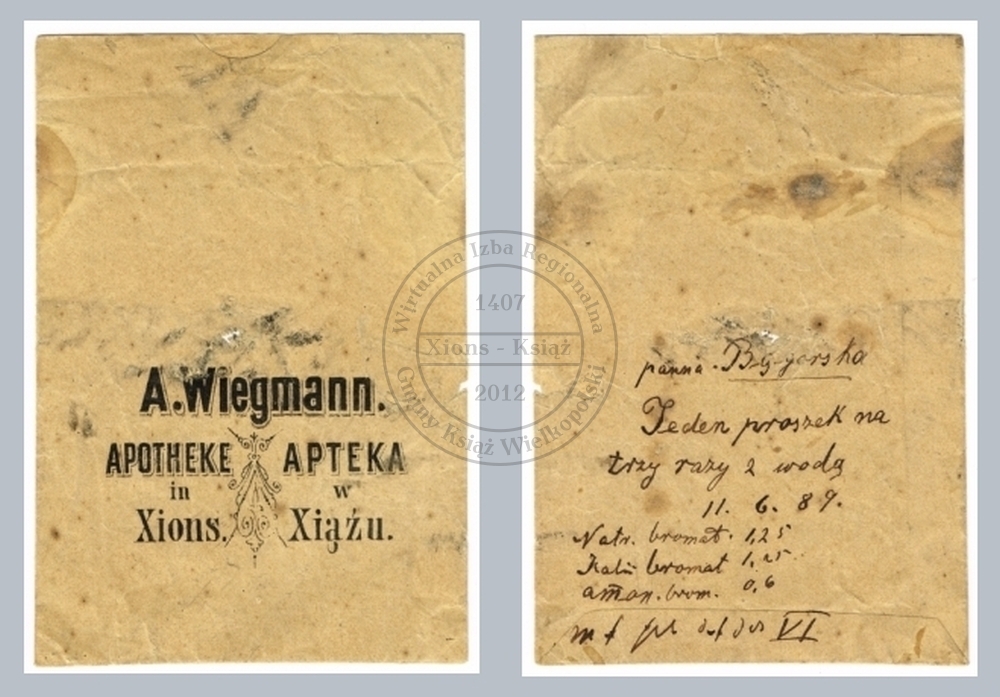 A. Wiegmann.
APOTHEKE APTEKA
in w
Xions. Xiążu.
Wirtualna Izba Regionalna
1407
Xions - Książ
2012
Gminy Książ Wielkopolski
panna
Jeden proszek na
trzy razy z wodą
11. 6. 89.
Natr. bromat. 1,25
Kalii bromat 1,25
amon. brom. 0,6
m f VI